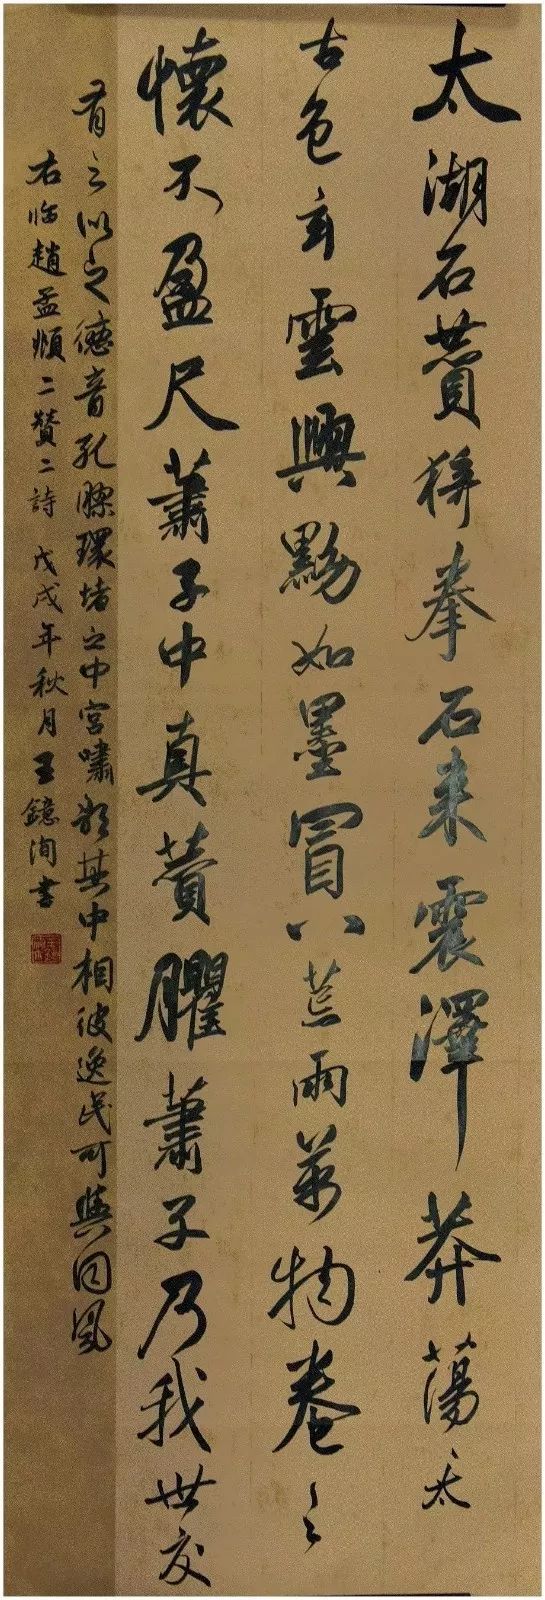 太湖石贊猗拳石来震澤莽蕩太
古色玄雲興黝如墨冒八荒雨萬物卷之
懷不盈尺蕭子中真贊臞蕭子乃我世交
有之似之德音孔膠環堵之中宮嘯歌其中相彼逸民可與同風
右臨趙孟頫二贊二詩戊戌年秋月王鐿洵書